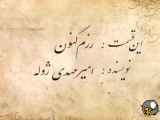 این قسمت : رزم گنون
نویسنده : امیرمهدی ژوله